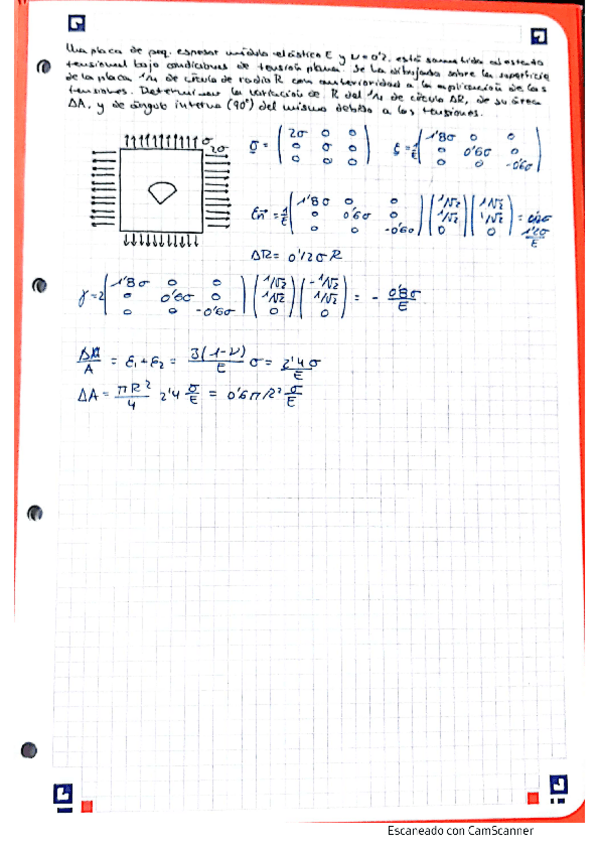 Una placa de peq. espesor módulo elástico E y ν=0'2, está sometida al estado
tensional bajo condiciones de tensión plana. Se ha dibujado sobre la superficie
de la placa 1/4 de círculo de radio R con anterioridad a la aplicación de las
tensiones. Determinar la variación de R del 1/4 de círculo ΔR, de su área
ΔA, y de ángulo interno (90°) del mismo debido a las tensiones.
σ
2σ
σ = ( 2σ 0 0
0 σ 0
0 0 0 )
ε = 1/E ( 1'8σ 0 0
0 0'6σ 0
0 0 -0'6σ )
εn = 1/E ( 1'8σ 0 0
0 0'6σ 0
0 0 -0'6σ ) ( 1/√2
1/√2
0 ) ( 1/√2
1/√2
0 ) = 1'2σ/E
ΔR = 0'12σR
γ = 2 ( 1'8σ 0 0
0 0'6σ 0
0 0 -0'6σ ) ( 1/√2
1/√2
0 ) ( -1/√2
1/√2
0 ) = - 0'8σ/E
ΔA/A = ε1 + ε2 = 3(1-ν)/E σ = 2'4σ/E
ΔA = πR²/4 2'4 σ/E = 0'6πR² σ/E
Escaneado con CamScanner